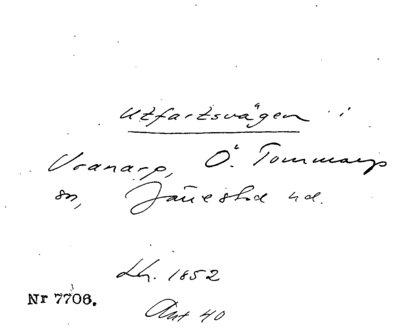 Utfartsvägen i
Vranarp, Ö. Tommarp
sn, Järrestad hd.
Lh. 1852
Nr 7706.
Akt 40